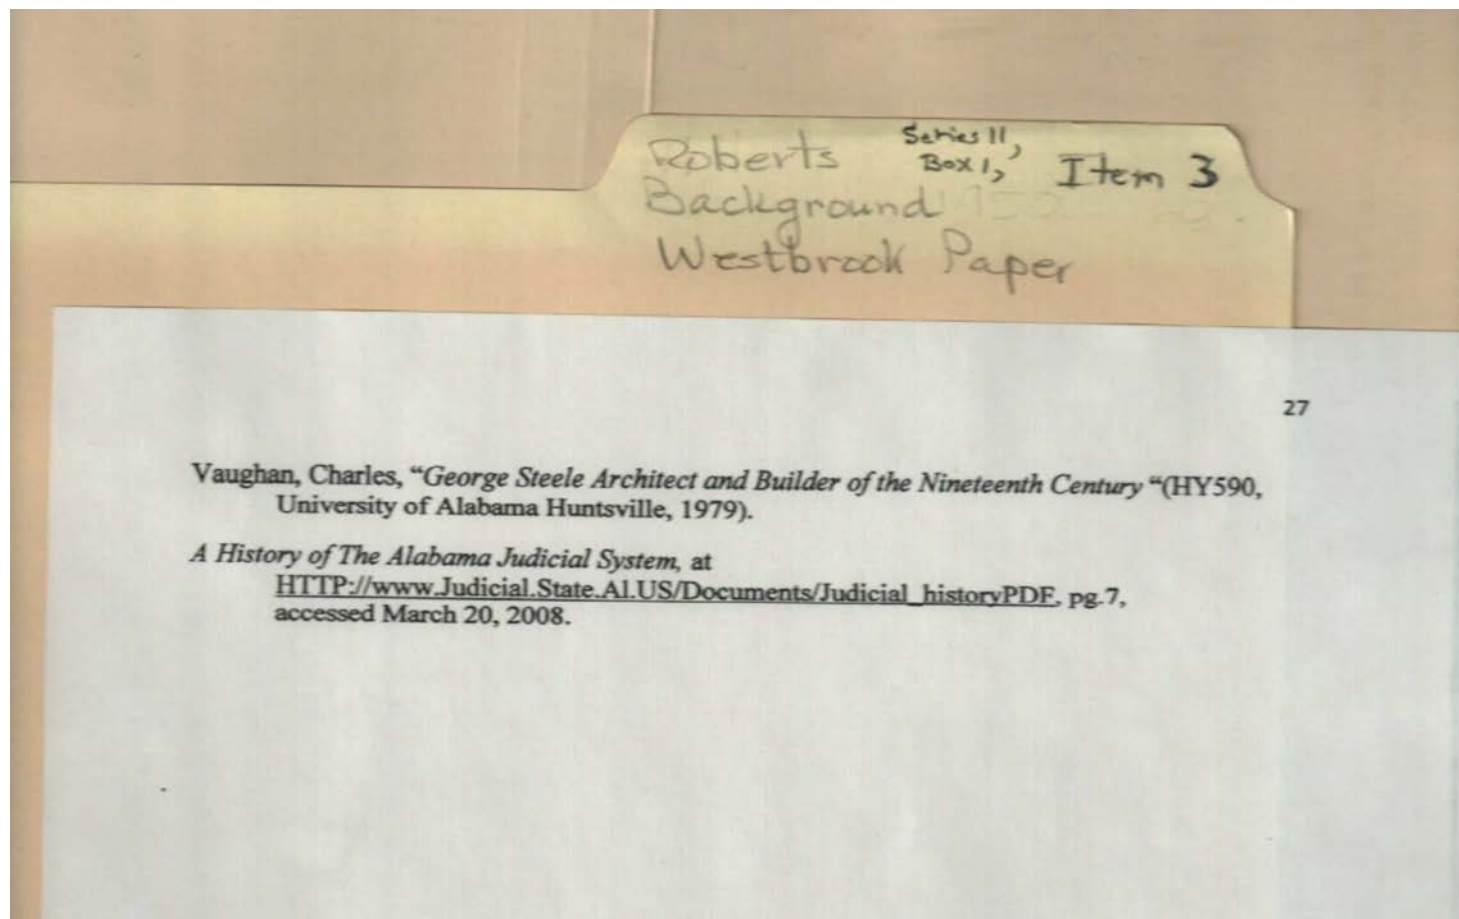 Roberts Series II, Box 1, Item 3
Background
Westbrook Paper
27
Vaughan, Charles, “George Steele Architect and Builder of the Nineteenth Century “(HY590,
University of Alabama Huntsville, 1979).
A History of The Alabama Judicial System, at
HTTP://www.Judicial.State.Al.US/Documents/Judicial_historyPDF, pg.7,
accessed March 20, 2008.